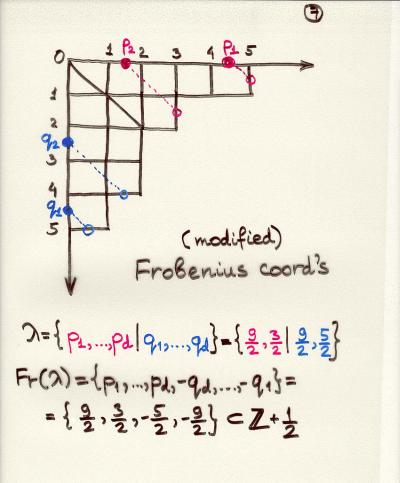 7
0 1 p₂ 2 3 4 p₁ 5
1
2
q₂
3
4
q₁
5
(modified)
Frobenius coord's
λ={p₁,...,p_d|q₁,...,q_d}={9/2,3/2|9/2,5/2}
Fr(λ)={p₁,...,p_d,-q_d,...,-q₁}=
={9/2,3/2,-5/2,-9/2}⊂ℤ+1/2